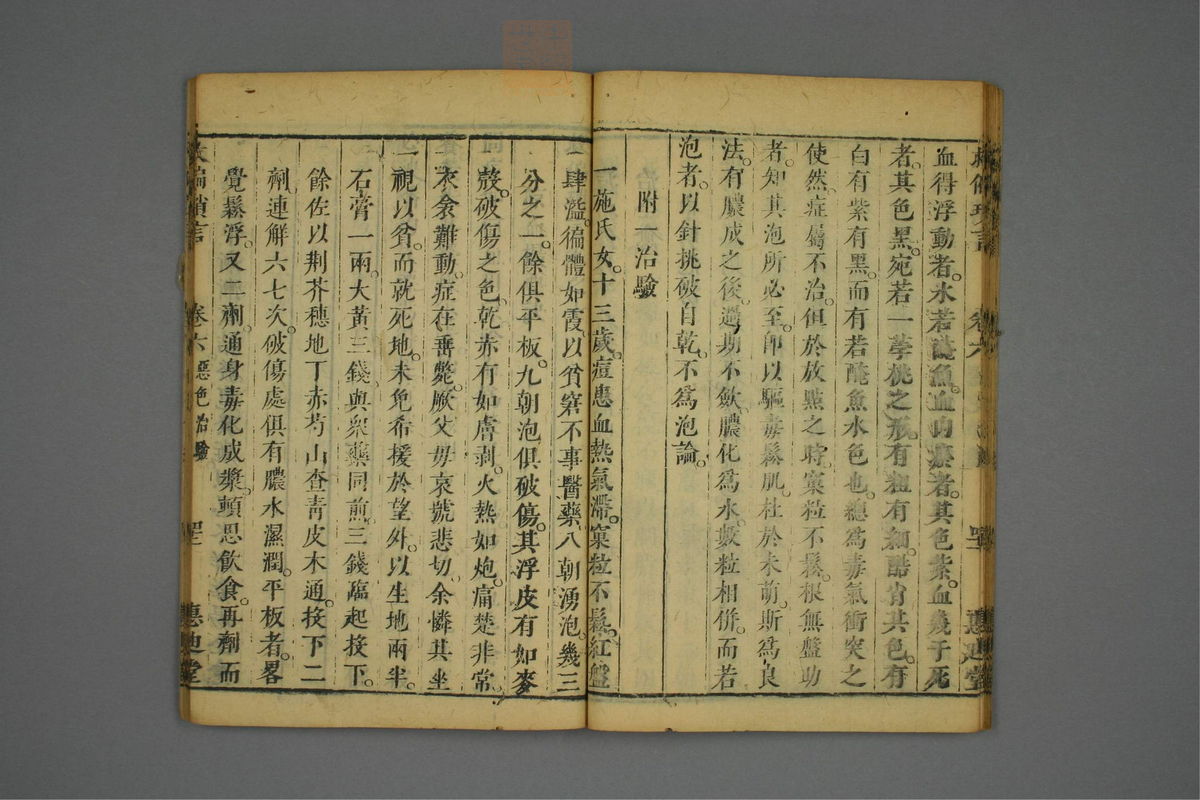 血得浮動者水若醃魚血内瘀者其色紫血幾于死
者其色黑宛若一莩桃之形有粗有細酷肖其色有
白有紫有黑而有若醃魚水色也總為毒氣衝突之
使然症屬不治但於放點之時窠粒不鬆根無盤助
者知其泡所必至即以驅毒鬆肌杜於未萌斯為良
法有膿成之後過期不歛膿化為水數粒相併而若
泡者以針挑破自乾不爲泡論
附一治驗
一施氏女十三歲痘患血熱氣滯窠粒不鬆紅盤
肆濫徧體如霞以貧窘不事醫藥八朝湧泡幾三
分之一餘俱平板九朝泡俱破傷其浮皮有如麥
殼破傷之色乾赤有如膚剥火熱如炮痛楚非常
衣衾難動症在垂斃厥父毋哀號悲切余憐其坐
視以貧而就死地未免希援於望外以生地兩半
石膏一兩大黃三錢與衆藥同煎三錢臨起接下
餘佐以荆芥穗地丁赤芍山查青皮木通接下二
劑連解六七次破傷處俱有膿水濕潤平板者畧
覺鬆浮又二劑通身毒化成漿頓思飲食再劑而
卷六 惡色治驗
惠迪堂